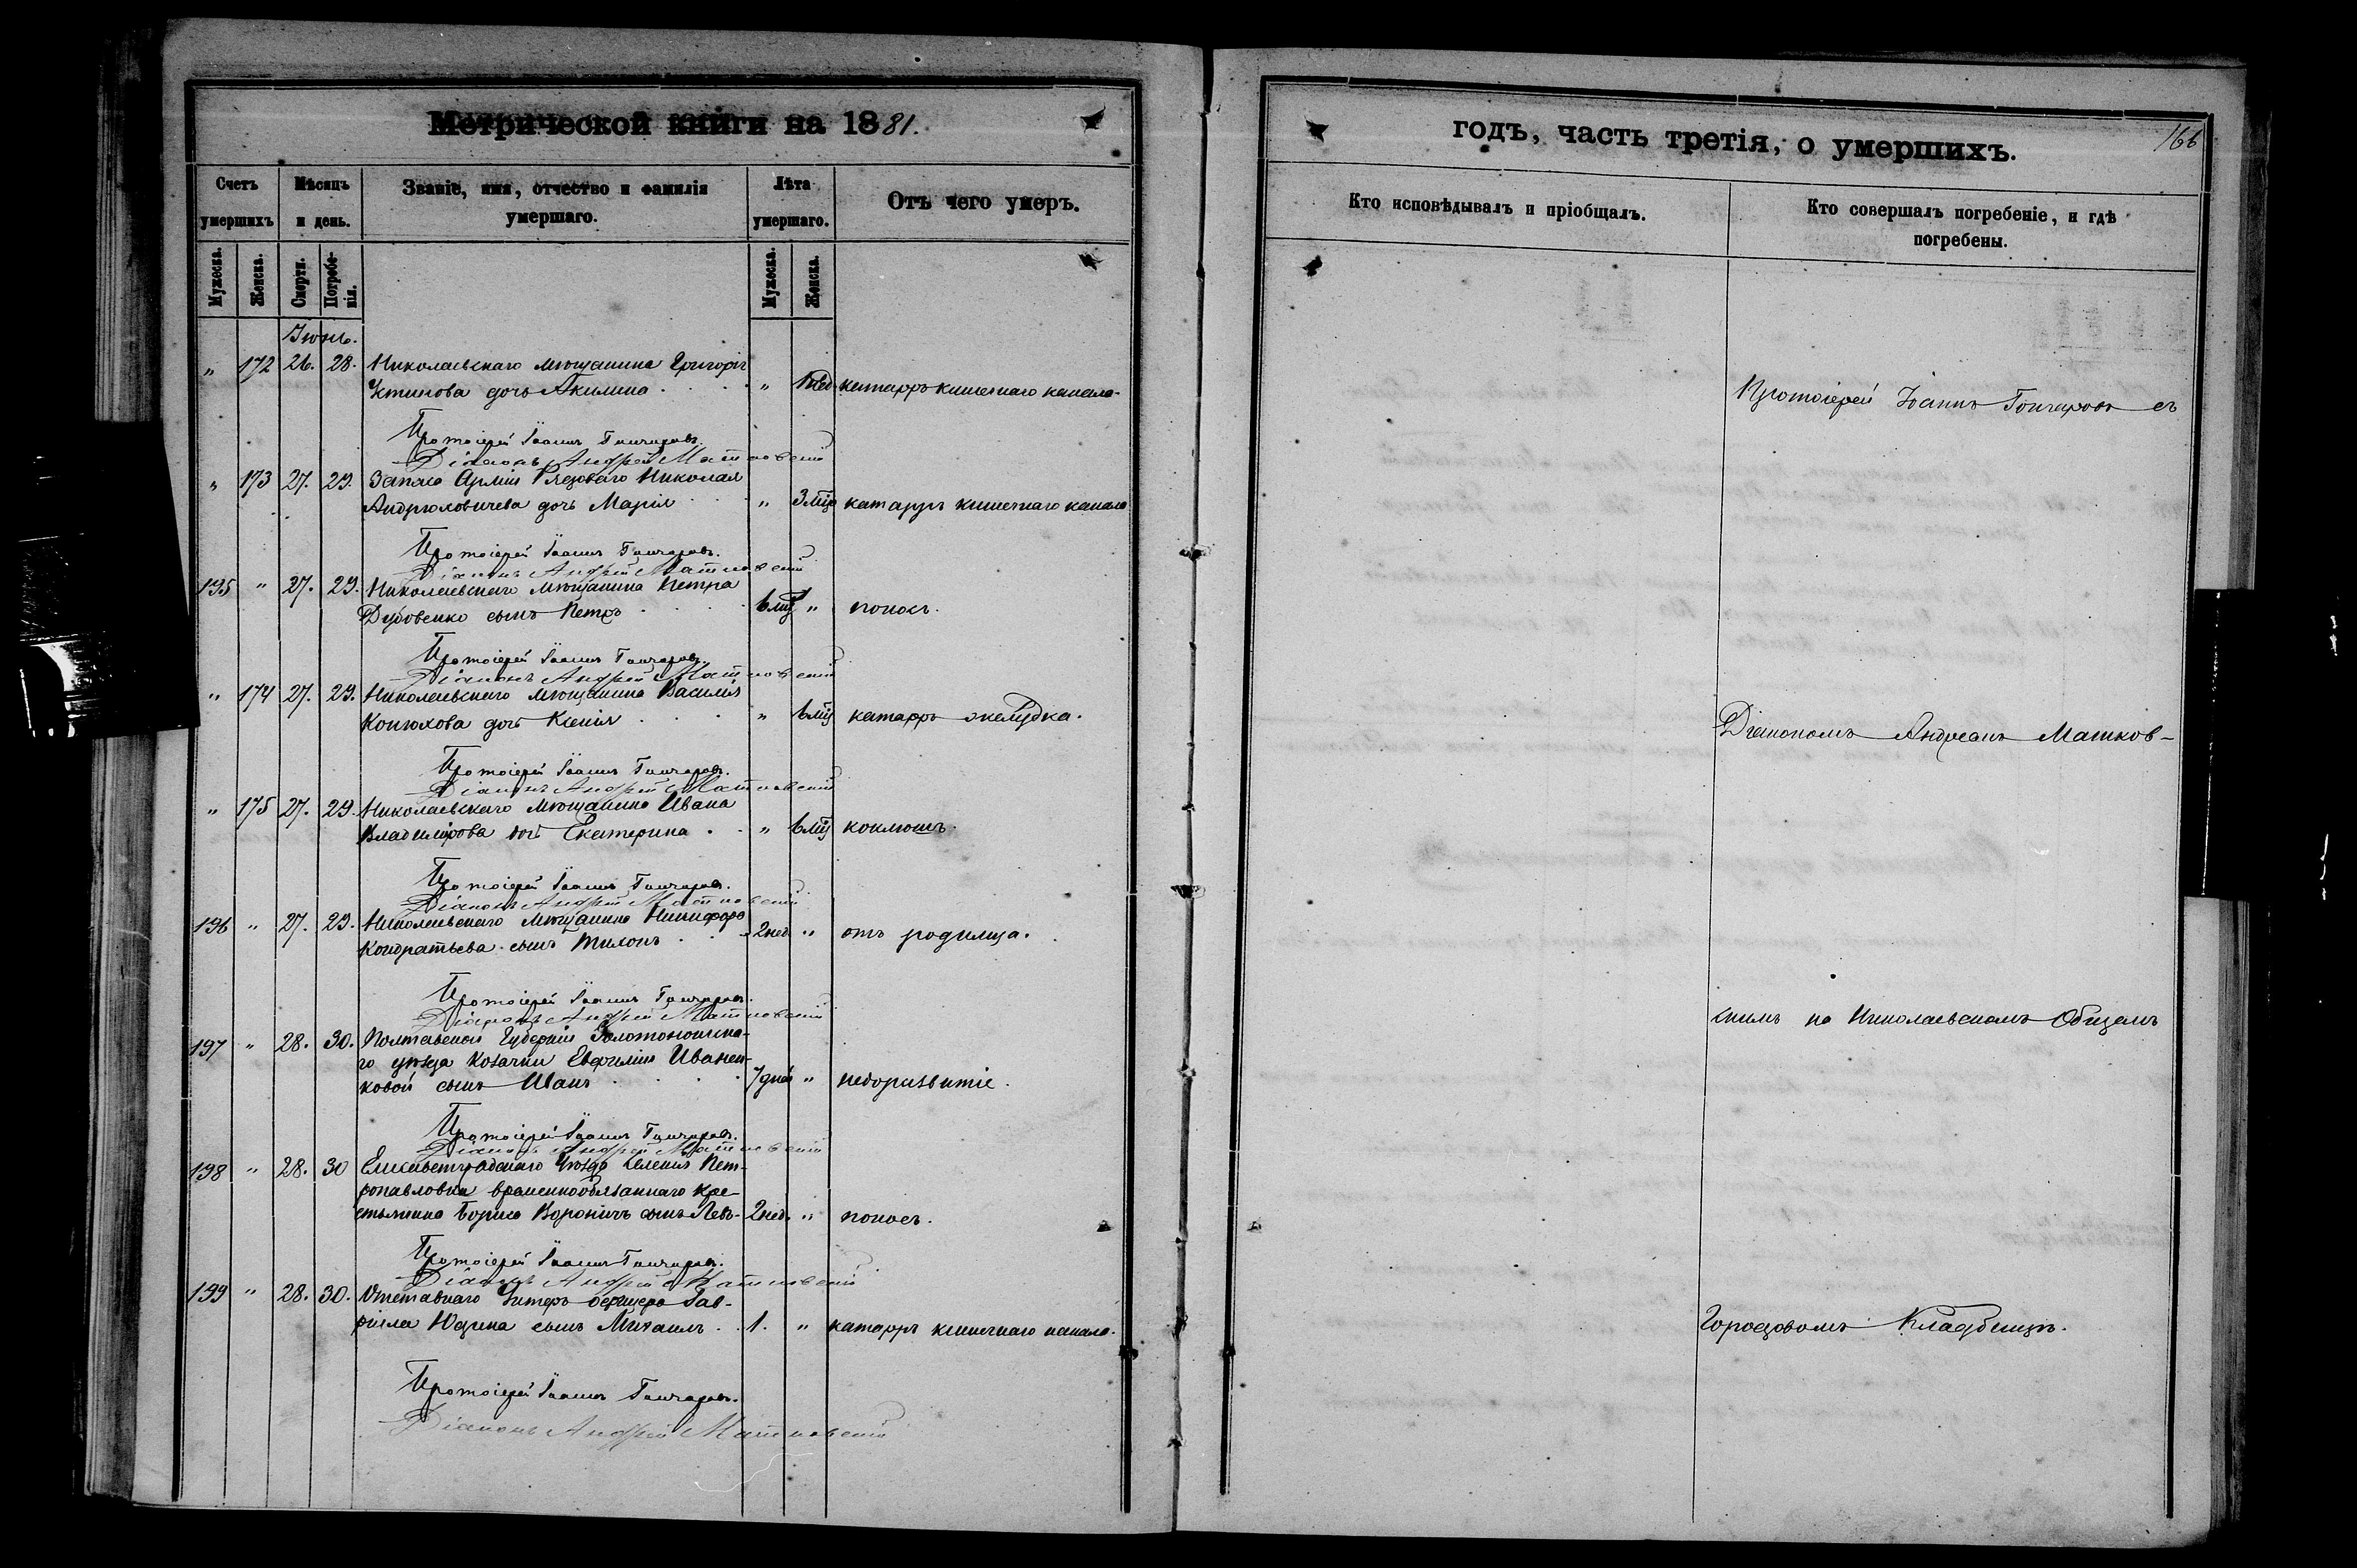 Метрической книги на 1881.
Счетъ умершихъ
Мѣсяцъ и день.
Званіе, имя, отчество и фамилія умершаго.
Лѣта умершаго.
Отъ чего умеръ.
Мужеска. Женска. Смерти. Погребенія. Мужеска. Женска.
Іюнь.
" 172 26. 28. Николаевскаго мѣщанина Григорія
Устинова дочь Акилина " нед. катарръ кишечнаго канала.
Протоіерей Іоаннъ Гончаровъ.
Діаконъ Андрей Матковскій
" 173 27. 29. Запаса Арміи Рядоваго Николая
Андрюховичева дочь Марія " 3 мѣс катарръ кишечнаго канала
Протоіерей Іоаннъ Гончаровъ.
Діаконъ Андрей Матковскій
195 " 27. 29. Николаевскаго мѣщанина Петра
Дубовенко сынъ Петръ 6 мѣс " поносъ.
Протоіерей Іоаннъ Гончаровъ.
Діаконъ Андрей Матковскій
" 174 27. 29. Николаевскаго мѣщанина Василія
Конюхова дочь Ксенія " 6 мѣс катарръ желудка.
Протоіерей Іоаннъ Гончаровъ.
Діаконъ Андрей Матковскій
" 175 27. 29. Николаевскаго мѣщанина Ивана
Владимірова дочь Екатерина " 6 мѣс коклюшъ.
Протоіерей Іоаннъ Гончаровъ.
Діаконъ Андрей Матковскій
196 " 27. 29. Николаевскаго мѣщанина Никифора
Кондратьева сынъ Тихонъ 2 нед. " отъ родимца.
Протоіерей Іоаннъ Гончаровъ.
Діаконъ Андрей Матковскій
197 " 28. 30. Полтавской Губерніи Золотоношска-
го уѣзда козачки Евфиміи Иванен-
ковой сынъ Иванъ 7 дней " недоразвитіе.
Протоіерей Іоаннъ Гончаровъ.
Діаконъ Андрей Матковскій
198 " 28. 30 Елисаветградскаго Уѣзда селенія Пет-
ропавловки временнообязаннаго кре-
стьянина Бориса Воронича сынъ Левъ 2 нед. " поносъ.
Протоіерей Іоаннъ Гончаровъ.
Діаконъ Андрей Матковскій
199 " 28. 30. Отставнаго Унтеръ офицера Гав-
ріила Юдина сынъ Михаилъ 1. " катарръ кишечнаго канала.
Протоіерей Іоаннъ Гончаровъ.
Діаконъ Андрей Матковскій
годъ, часть третія, о умершихъ.
166
Кто исповѣдывалъ и пріобщалъ.
Кто совершалъ погребеніе, и гдѣ
погребены.
Протоіерей Іоаннъ Гончаровъ съ
Діакономъ Андреемъ Матков-
скимъ на Николаевскомъ Общемъ
Городовомъ Кладбищѣ.